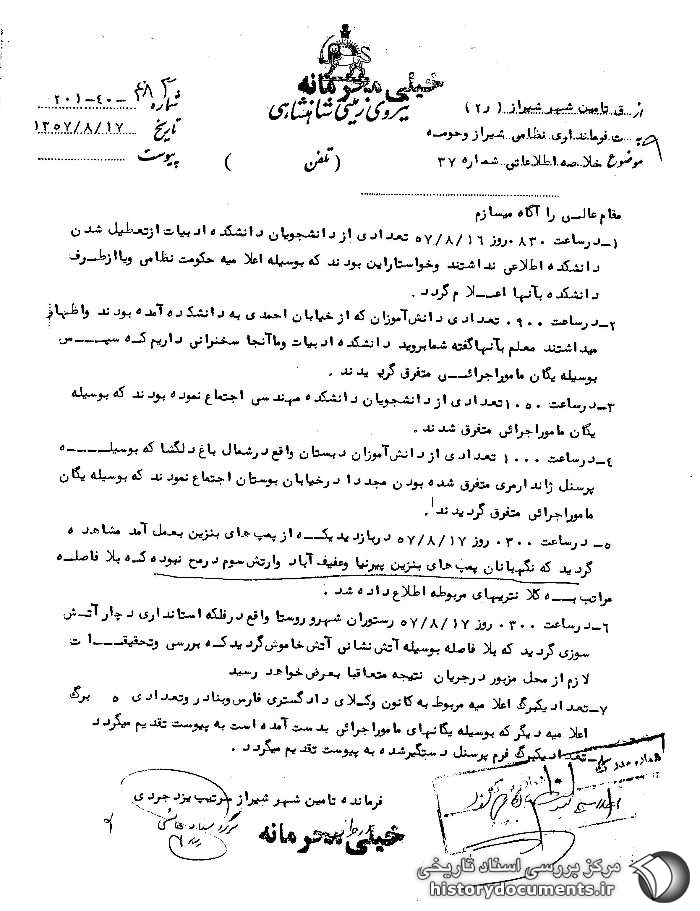 خیلی محرمانه
نیروی زمینی شاهنشاهی
از ق تامین شهر شیراز (ر۲)
به ت فرمانداری نظامی شیراز وحومه
موضوع خلاصه اطلاعاتی شماره ۳۷
شماره ۲۰۱-۴۰-
تاریخ ۱۳۵۷/۸/۱۷
پیوست
(تلفن )
مقام عالی را آگاه میسازم
۱-در ساعت ۰۸۳۰ روز ۵۷/۸/۱۶ تعدادی از دانشجویان دانشکده ادبیات از تعطیل شدن
دانشکده اطلاعی نداشتند وخواستار این بودند که بوسیله اعلامیه حکومت نظامی ویا از طرف
دانشکده بآنها اعلام گردد .
۲-در ساعت ۰۹۰۰ تعدادی دانش آموزان که از خیابان احمدی به دانشکده آمده بودند واظهار
میداشتند معلم بآنها گفته شما بروید دانشکده ادبیات وما آنجا سخنرانی داریم که سپس
بوسیله یگان مامور اجرائی متفرق گردیدند .
۳-در ساعت ۱۰۵۰ تعدادی از دانشجویان دانشکده مهندسی اجتماع نموده بودند که بوسیله
یگان مامور اجرائی متفرق شدند .
۴-در ساعت ۱۰۰۰ تعدادی از دانش آموزان دبستان واقع در شمال باغ دلگشا که بوسیله
پرسنل ژاندارمری متفرق شده بودن مجددا در خیابان بوستان اجتماع نمودند که بوسیله یگان
مامور اجرائی متفرق گردیدند .
۵- در ساعت ۰۳۰۰ روز ۵۷/۸/۱۷ در بازدیدیکه از پمپ های بنزین بعمل آمد مشاهده
گردید که نگهبانان پمپ های بنزین پیرنیا وعفیف آباد وارتش سوم در محل نبوده که بلا فاصله
مراتب به کلانتریهای مربوطه اطلاع داده شد .
۶-در ساعت ۰۳۰۰ روز ۵۷/۸/۱۷ رستوران شهر و روستا واقع در فلکه استانداری دچار آتش
سوزی گردید که بلا فاصله بوسیله آتش نشانی آتش خاموش گردید که بررسی وتحقیقات
لازم از محل مزبور در جریان نتیجه متعاقبا بعرض خواهد رسید
۷-تعداد یکبرگ اعلامیه مربوط به کانون وکلای دادگستری فارس وبنادر وتعدادی ۵ برگ
اعلامیه دیگر که بوسیله یگانهای مامور اجرائی بدست آمده است به پیوست تقدیم میگردد
۸-تعداد یکبرگ فرم پرسنل دستگیر شده به پیوست تقدیم میگردد .
فرمانده تامین شهر شیراز سرتیپ یزدجردی
خیلی محرمانه
مرکز بررسی اسناد تاریخی
historydocuments.ir